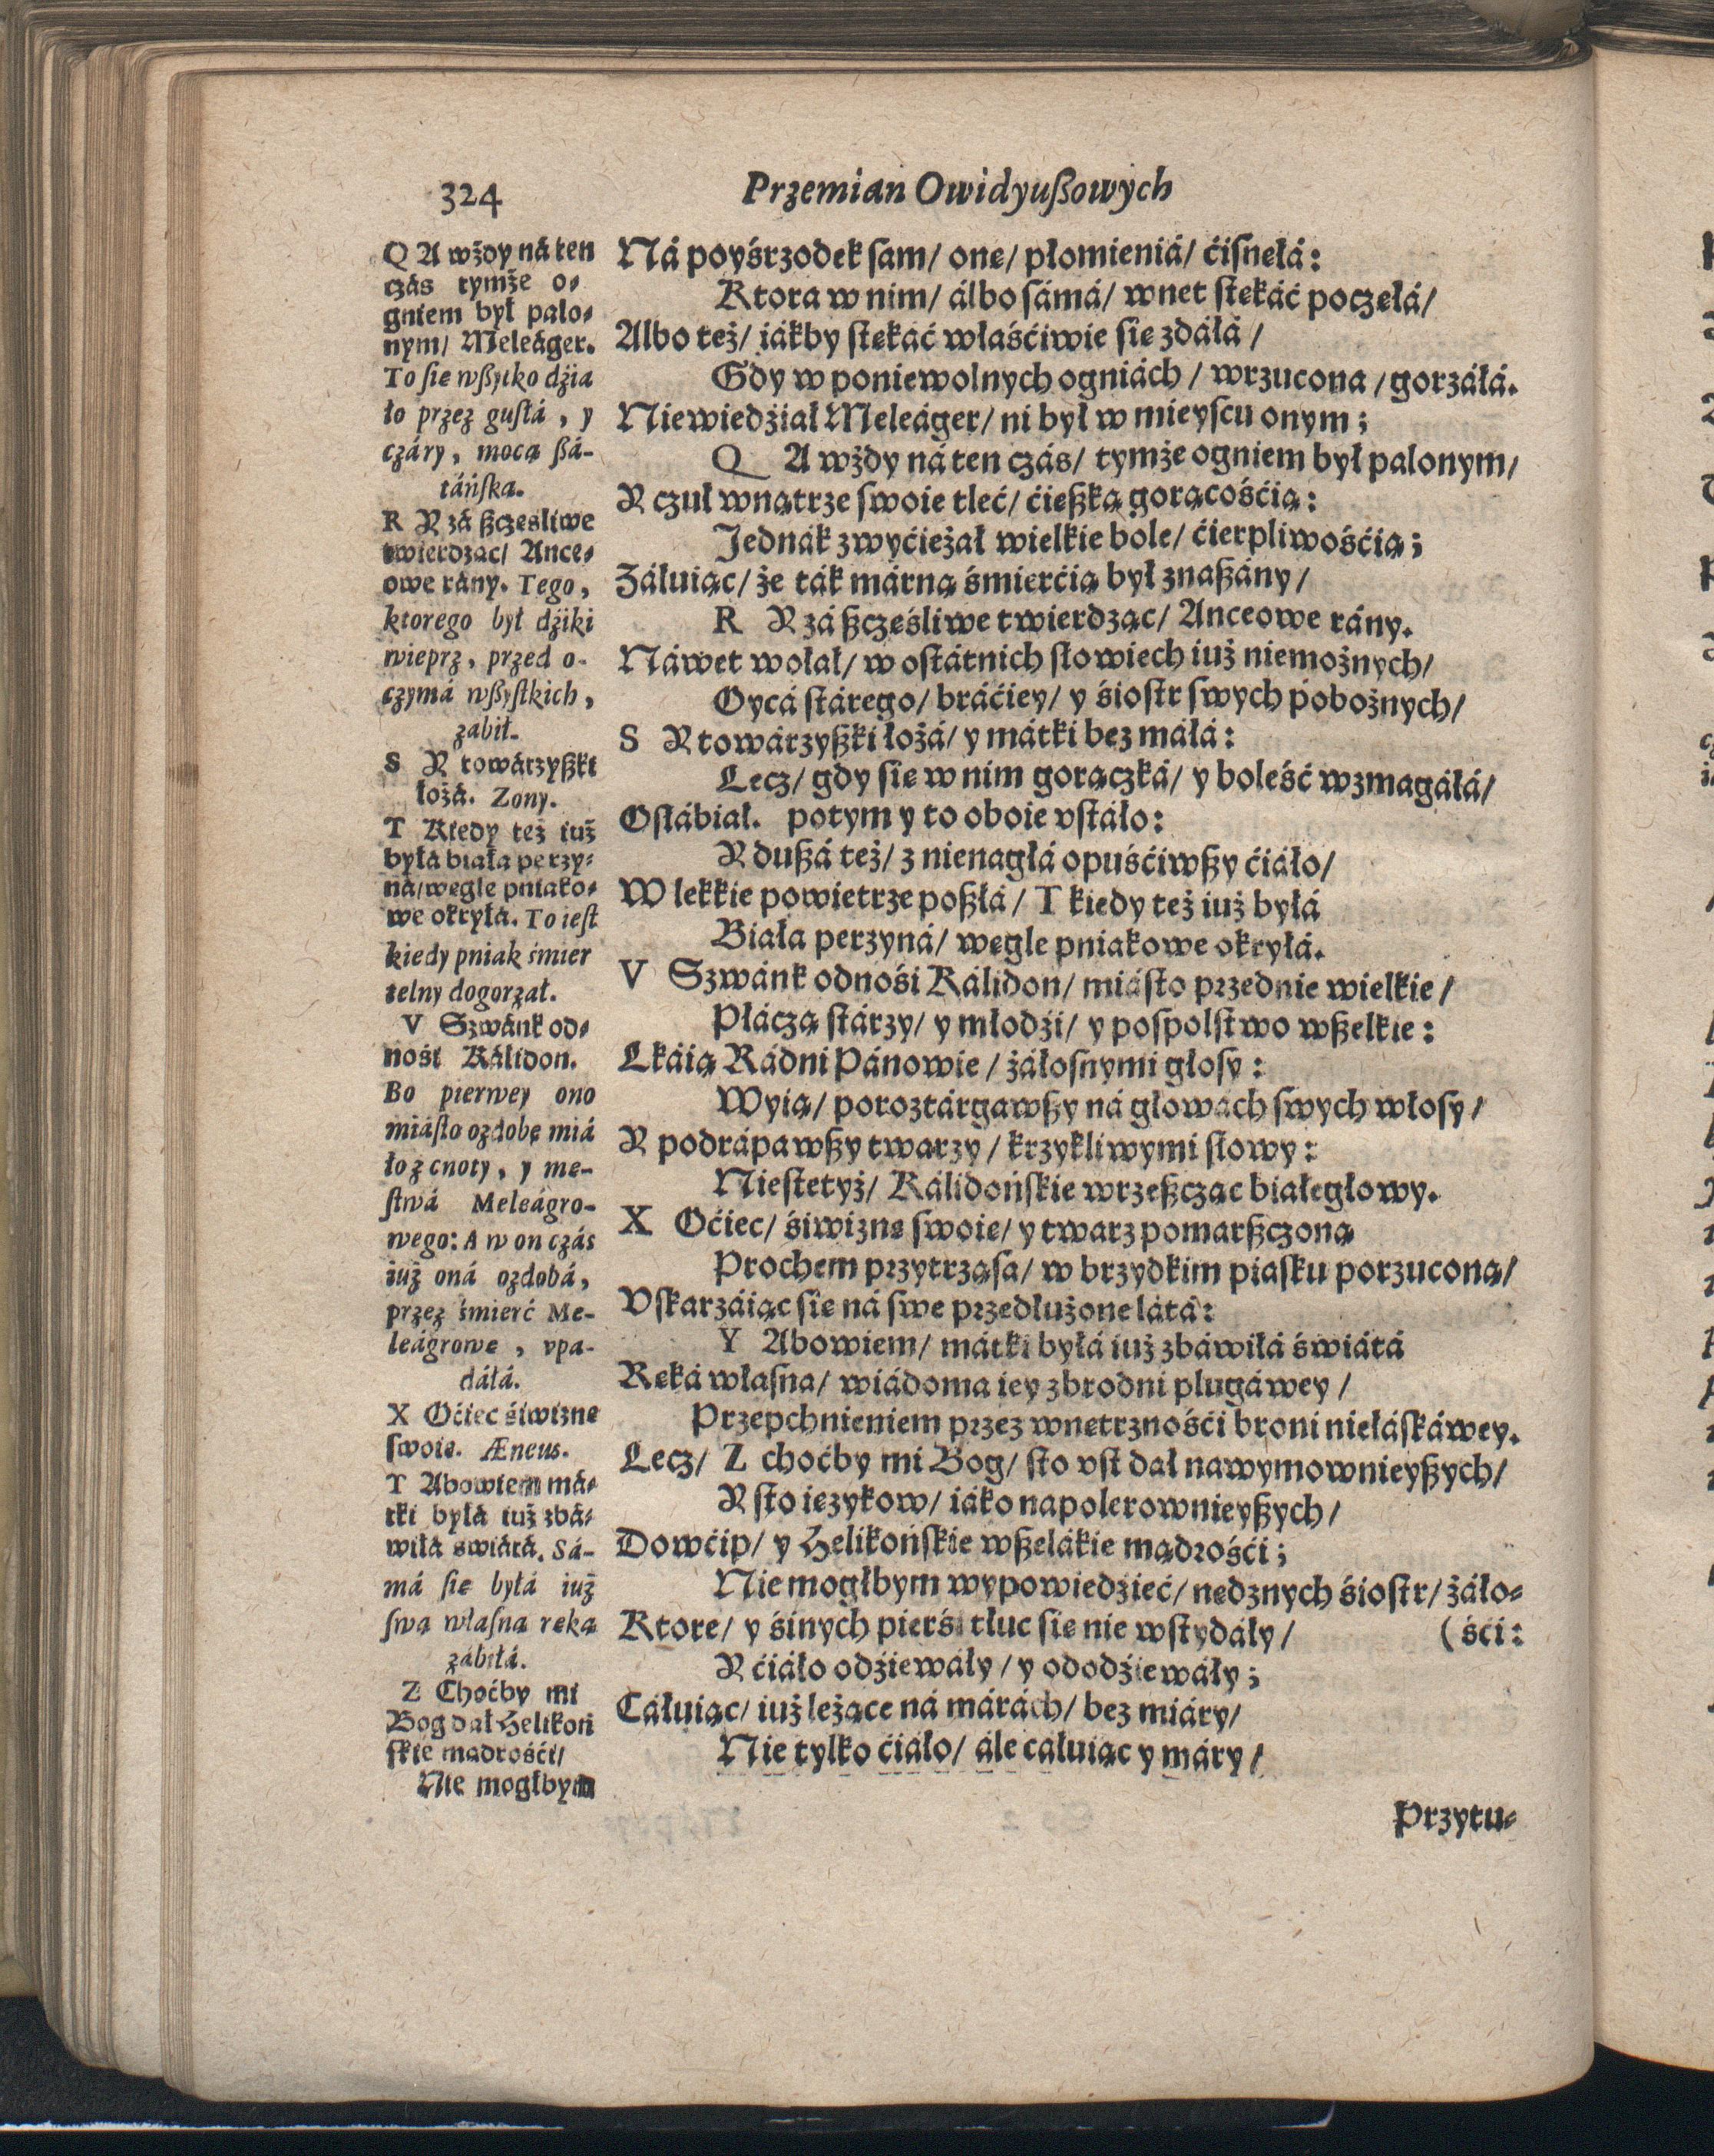 324
Przemian Owidyußowych
Q A wżdy ná ten
czás tymże o-
gniem był palo-
nym/ Meleáger.
To sie wßytko dźia
ło przez gusłá, y
czáry, mocą ßá-
táńską.
R Y zá ßczęsliwe
twierdząc/ Ance-
owe rány. Tego,
ktorego był dźiki
wieprz, przed o-
czymá wßystkich,
zabił.
S Y towárzyßki
łożá. Zony.
T Kiedy też iuż
byłá biała perzy-
ná/ węgle pniako-
we okryłá. To iest
kiedy pniak śmier
telny dogorzał.
V Szwánk od-
nośi Kálidon.
Bo pierwey ono
miásto ozdobę miá
ło z cnoty, y mę-
stwá Meleágro-
wego: A w on czás
iuż oná ozdobá,
przez śmierć Me-
leágrowę, vpa-
dáłá.
X Oćiec śiwiznę
swoię. Æneus.
T Abowiem má-
tki byłá iuż zbá-
wiłá świátá. Sá-
má się byłá iuż
swą własną ręką
zábiłá.
Z Choćby mi
Bog dał Helikoń
skie mądrośći/
Nie mogłbym
Ná poyśrzodek sam/ onę/ płomieniá/ ćisnęłá:
Ktora w nim/ álbo sámá/ wnet stękáć poczęłá/
Albo też/ iákby stękáć właśćiwie się zdáłá/
Gdy w poniewolnych ogniách/ wrzucona/ gorzáłá.
Niewiedźiał Meleáger/ ni był w mieyscu onym;
Q A wżdy ná ten czás/ tymże ogniem był palonym/
Y czuł wnątrze swoie tleć/ ćięßką gorącośćią:
Jednák zwyćiężał wielkie bole/ ćierpliwośćią;
Záłuiąc/ że ták márną śmierćią był znaßány/
R Y zá ßczęśliwe twierdząc/ Anceowe rány.
Náwet wołał/ w ostátnich słowiech iuż niemożnych/
Oycá stárego/ bráćiey/ y śiostr swych pobożnych/
S Y towárzyßki łożá/ y mátki bez máłá:
Lecz/ gdy się w nim gorączká/ y boleść wzmagáłá/
Osłábiał. potym y to oboie vstáło:
Y dußá też/ z nienagłá opuśćiwßy ćiáło/
W lekkie powietrze poßłá/ T kiedy też iuż byłá
Biała perzyná/ węgle pniakowe okryłá.
V Szwánk odnośi Kálidon/ miásto przednie wielkie/
Płáczą stárzy/ y młodźi/ y pospolstwo wßelkie:
Lkáią Rádni Pánowie/ żáłosnymi głosy:
Wyią/ poroztárgawßy ná głowách swych włosy/
Y podrápawßy twarzy/ krzykliwymi słowy:
Niestetyż/ Kálidońskie wrzeßcząc białegłowy.
X Oćiec/ śiwiznę swoię/ y twarz pomarßczoną
Prochem przytrząsa/ w brzydkim piasku porzuconą/
Vskarzáiąc się ná swe przedłużone látá:
Y Abowiem/ mátki byłá iuż zbáwiłá świátá
Ręká własna/ wiádoma iey zbrodni plugáwey/
Przepchnieniem przez wnętrznośći broni niełáskáwey.
Lecz/ Z choćby mi Bog/ sto vst dał nawymownieyßych/
Y sto ięzykow/ iáko napolerownieyßych/
Dowćip/ y Helikońskie wßelákie mądrośći;
Nie mogłbym wypowiedźieć/ nędznych śiostr/ żáło-
Ktore/ y śinych pierśi tłuc się nie wstydáły/ (śći:
Y ćiáło odźiewáły/ y ododźiewáły;
Cáłuiąc/ iuż leżące ná márách/ bez miáry/
Nie tylko ćiáło/ ále cáłuiąc y máry/
Przytu-